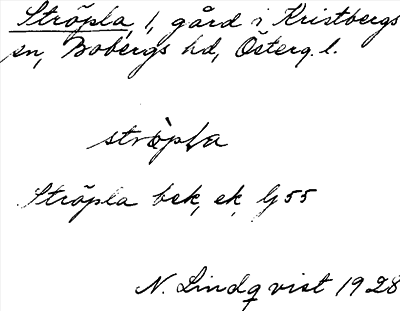 Ströpla, 1, gård i Kristbergs
sn, Bobergs hd, Österg. l.
ströpla
Ströpla bek, ek. Gj 55
N. Lindqvist 1928